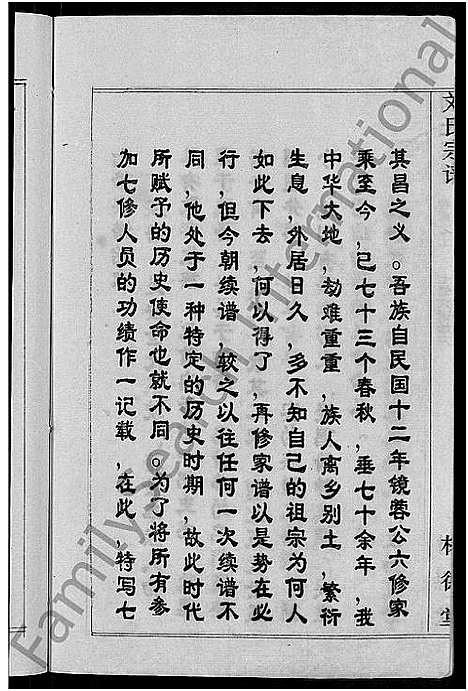 刘氏宗谱
其昌之义。吾族自民国十二年镜蓉公六修家
乘至今,已七十三个春秋,垂七十余年,我
中华大地,劫难重重,族人离乡别土,繁衍
生息,外居日久,多不知自己的祖宗为何人
如此下去,何以得了,再修家谱以是势在必
行,但今朝续谱,较之以往任何一次续谱不
同,他处于一种特定的历史时期,故此时代
所赋予的历史使命也就不同。为了将所有参
加七修人员的功绩作一记载,在此,特写七
FamilySearch International